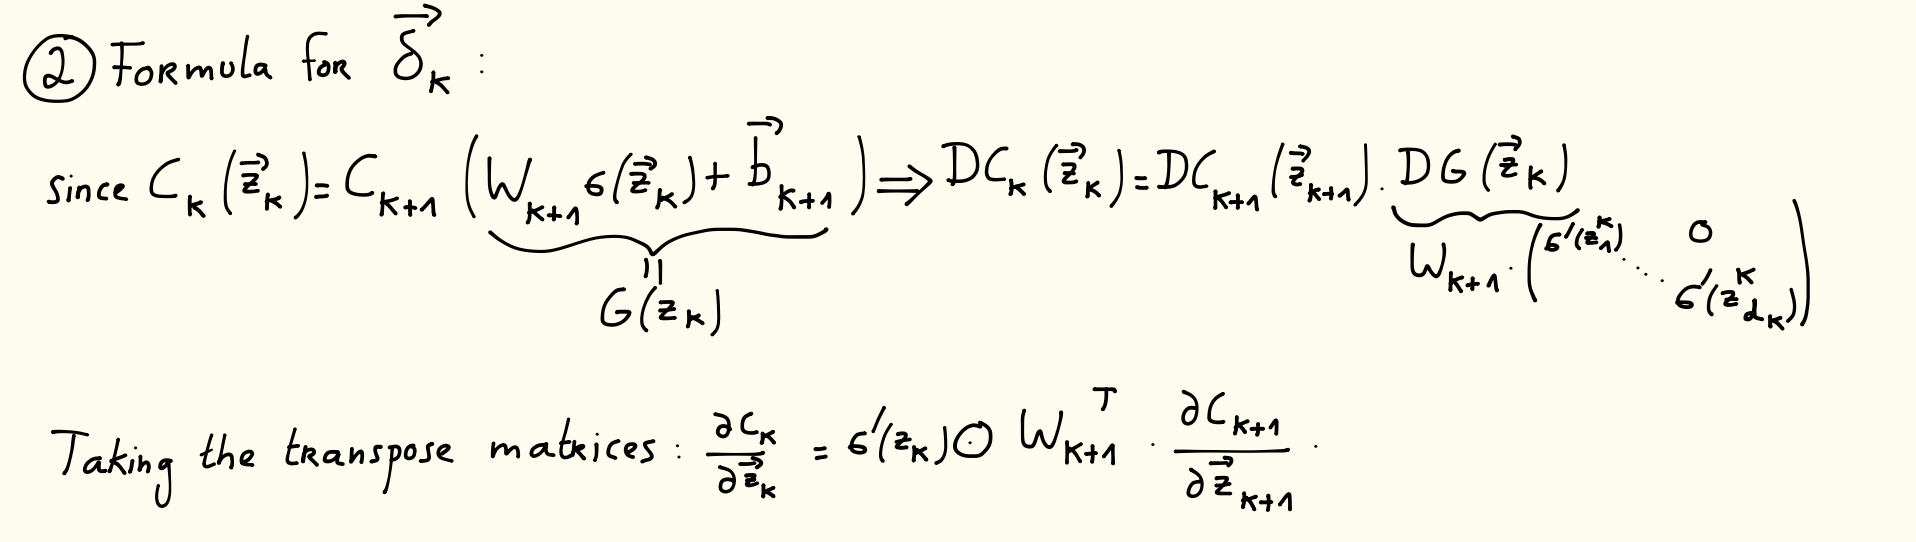 ② Formula for $\vec{\delta}_k$ :
since $C_k(\vec{z}_k) = C_{k+1}(\underbrace{W_{k+1}\sigma(\vec{z}_k) + \vec{b}_{k+1}}_{\overset{||}{G(z_k)}}) \Rightarrow DC_k(\vec{z}_k) = DC_{k+1}(\vec{z}_{k+1}) \cdot \underbrace{DG(\vec{z}_k)}_{W_{k+1} \cdot \begin{pmatrix} \sigma'(z_1^k) & & 0 \\ & \ddots & \\ & & \sigma'(z_{d_k}^k) \end{pmatrix}}$
Taking the transpose matrices : $\frac{\partial C_k}{\partial \vec{z}_k} = \sigma'(z_k) \odot W_{k+1}^T \cdot \frac{\partial C_{k+1}}{\partial \vec{z}_{k+1}}$ .